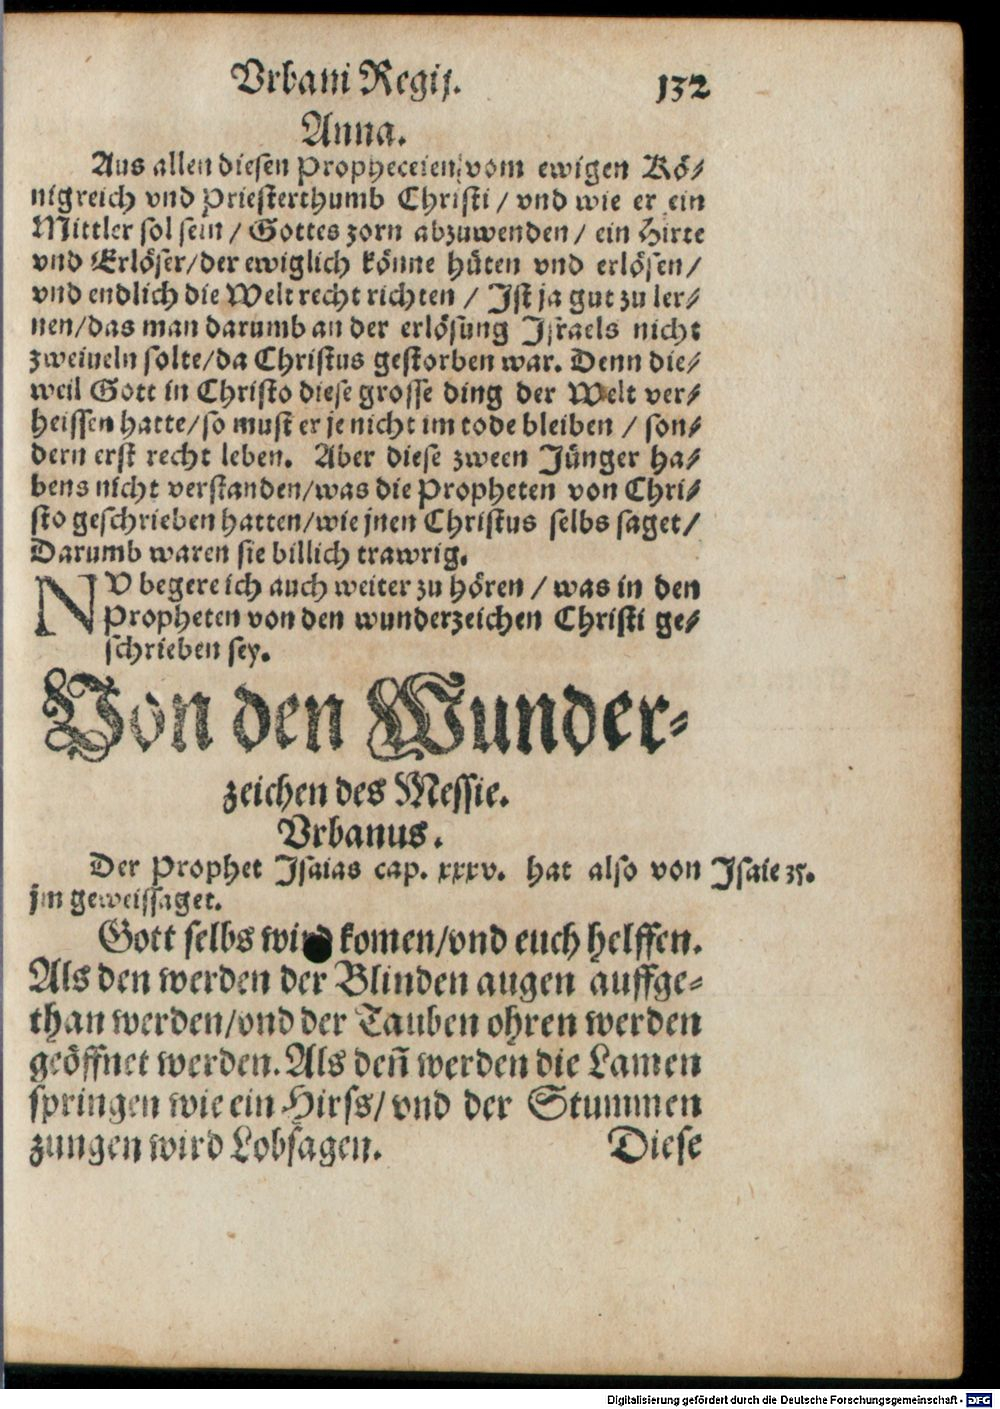 Vrbani Regij. 132
Anna.
Aus allen diesen Propheceien/vom ewigen Kö⸗
nigreich vnd Priesterthumb Christi / vnd wie er ein
Mittler sol sein / Gottes zorn abzuwenden / ein Hirte
vnd Erlöser/der ewiglich könne hüten vnd erlösen/
vnd endlich die Welt recht richten / Jst ja gut zu ler⸗
nen/das man darumb an der erlösung Jsraels nicht
zweiueln solte/da Christus gestorben war. Denn die⸗
weil Gott in Christo diese grosse ding der Welt ver⸗
heissen hatte/so must er je nicht im tode bleiben / son⸗
dern erst recht leben. Aber diese zween Jünger ha⸗
bens nicht verstanden/was die Propheten von Chri⸗
sto geschrieben hatten/wie jnen Christus selbs saget/
Darumb waren sie billich trawrig.
NV begere ich auch weiter zu hören / was in den
Propheten von den wunderzeichen Christi ge⸗
schrieben sey.
Von den Wunder⸗
zeichen des Messie.
Vrbanus.
Der Prophet Jsaias cap. xxxv. hat also von Jsaie 35.
jm geweissaget.
Gott selbs wird komen/vnd euch helffen.
Als den werden der Blinden augen auffge⸗
than werden/vnd der Tauben ohren werden
geöffnet werden. Als deñ werden die Lamen
springen wie ein Hirss/ vnd der Stummen
zungen wird Lobsagen. Diese
Digitalisierung gefördert durch die Deutsche Forschungsgemeinschaft - DFG